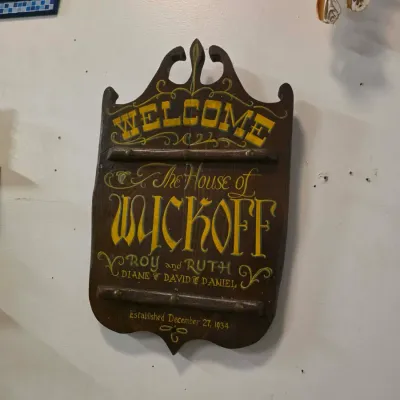 WELCOME
The House of
WYCKOFF
ROY and RUTH
DIANE DAVID DANIEL
Established December 27, 1934